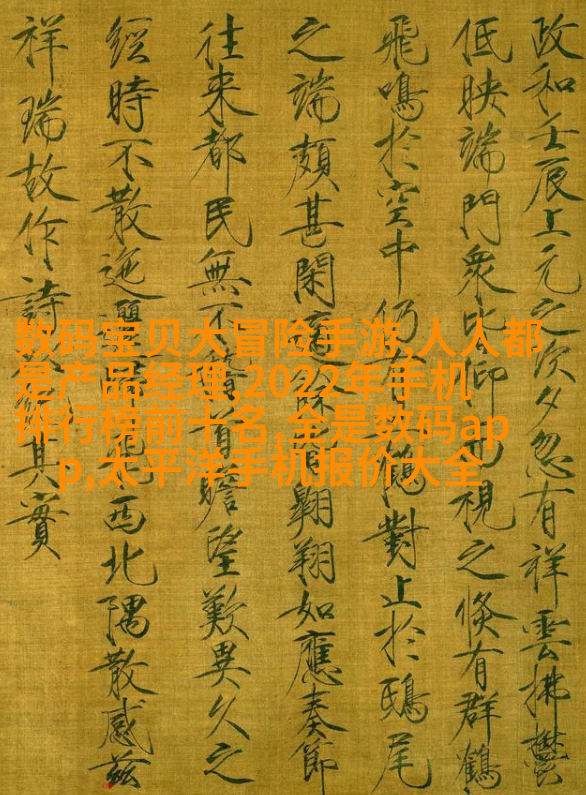 政和壬辰上元之次夕忽有祥雲拂鬱
低映端門衆皆仰而視之倏有群鶴
飛鳴於空中仍鶴對止於鴟尾
之端頗甚閑餘皆翱翔如應奏節
往來都民無不稽首瞻望歎異久之
經時不散迤邐西北隅散感茲
祥瑞故作詩其實
数码宝贝大冒险手游,人人都
是产品经理,2022年手机
排行榜前十名,全是数码ap
p,太平洋手机报价大全